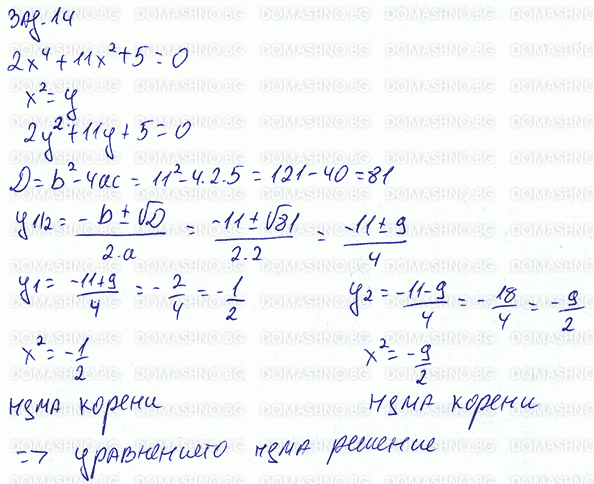 DOMASHNO.BG
Зад. 14
2x⁴ + 11x² + 5 = 0
x² = y
2y² + 11y + 5 = 0
D = b² - 4ac = 11² - 4.2.5 = 121 - 40 = 81
y1/2 = (-b ± √D)/(2.a) = (-11 ± √81)/(2.2) = (-11 ± 9)/4
y1 = (-11+9)/4 = -2/4 = -1/2
y2 = (-11-9)/4 = -18/4 = -9/2
x² = -1/2
x² = -9/2
няма корени
няма корени
=> уравнението няма решение